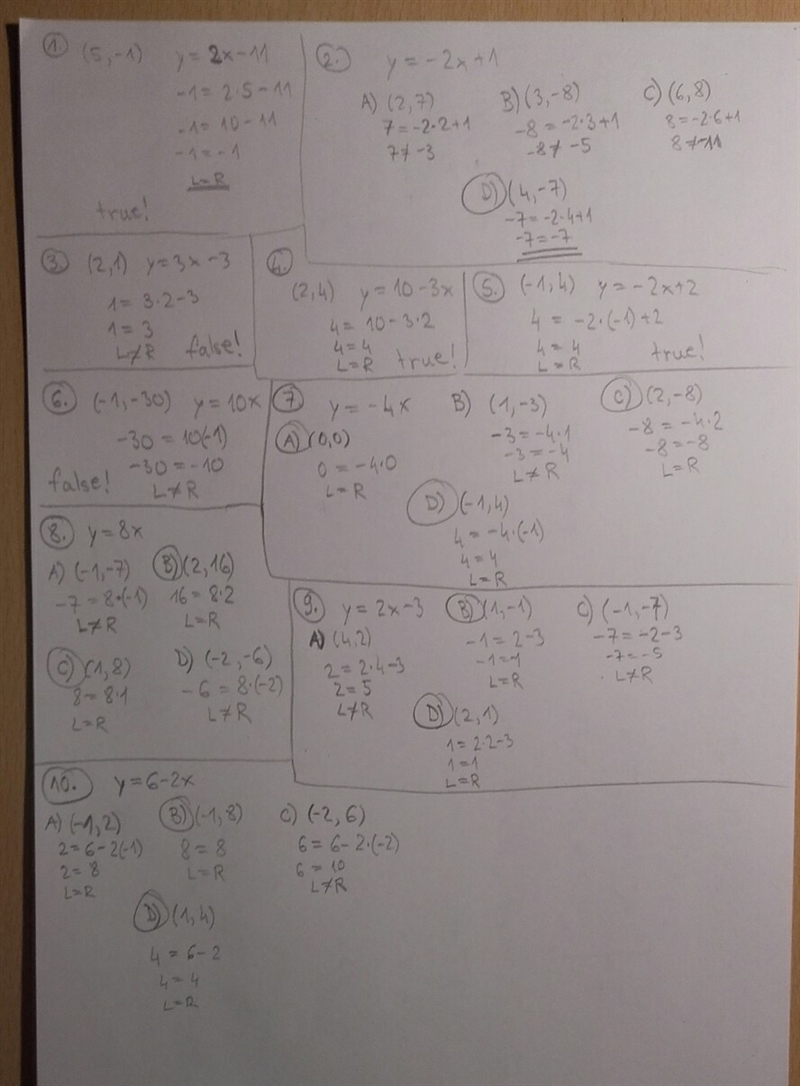 1. (5,-1) y=2x-11
-1=2·5-11
-1=10-11
-1=-1
L=R
true!
2. y=-2x+1
A) (2,7)
7=-2·2+1
7≠-3
B) (3,-8)
-8=-2·3+1
-8≠-5
C) (6,8)
8=-2·6+1
8≠-11
D) (4,-7)
-7=-2·4+1
-7=-7
3. (2,1) y=3x-3
1=3·2-3
1=3
L≠R false!
4. (2,4) y=10-3x
4=10-3·2
4=4
L=R true!
5. (-1,4) y=-2x+2
4=-2·(-1)+2
4=4
L=R true!
6. (-1,-30) y=10x
-30=10(-1)
-30=-10
false! L≠R
7 y=-4x
A) (0,0)
0=-4·0
L=R
B) (1,-3)
-3=-4·1
-3=-4
L≠R
C) (2,-8)
-8=-4·2
-8=-8
L=R
D) (-1,4)
4=-4·(-1)
4=4
L=R
8. y=8x
A) (-1,-7)
-7=8·(-1)
L≠R
B) (2,16)
16=8·2
L=R
C) (1,8)
8=8·1
L=R
D) (-2,-6)
-6=8·(-2)
L≠R
9. y=2x-3
A) (4,2)
2=2·4-3
2=5
L≠R
B) (1,-1)
-1=2-3
-1=-1
L=R
C) (-1,-7)
-7=-2-3
-7=-5
L≠R
D) (2,1)
1=2·2-3
1=1
L=R
10. y=6-2x
A) (-1,2)
2=6-2(-1)
2=8
L=R
B) (-1,8)
8=8
L=R
C) (-2,6)
6=6-2·(-2)
6=10
L≠R
D) (1,4)
4=6-2
4=4
L=R